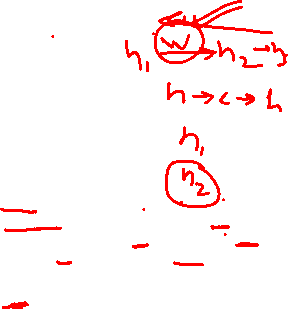 W
h₁ → h₂ → h
h → c → h
h₁
h₂